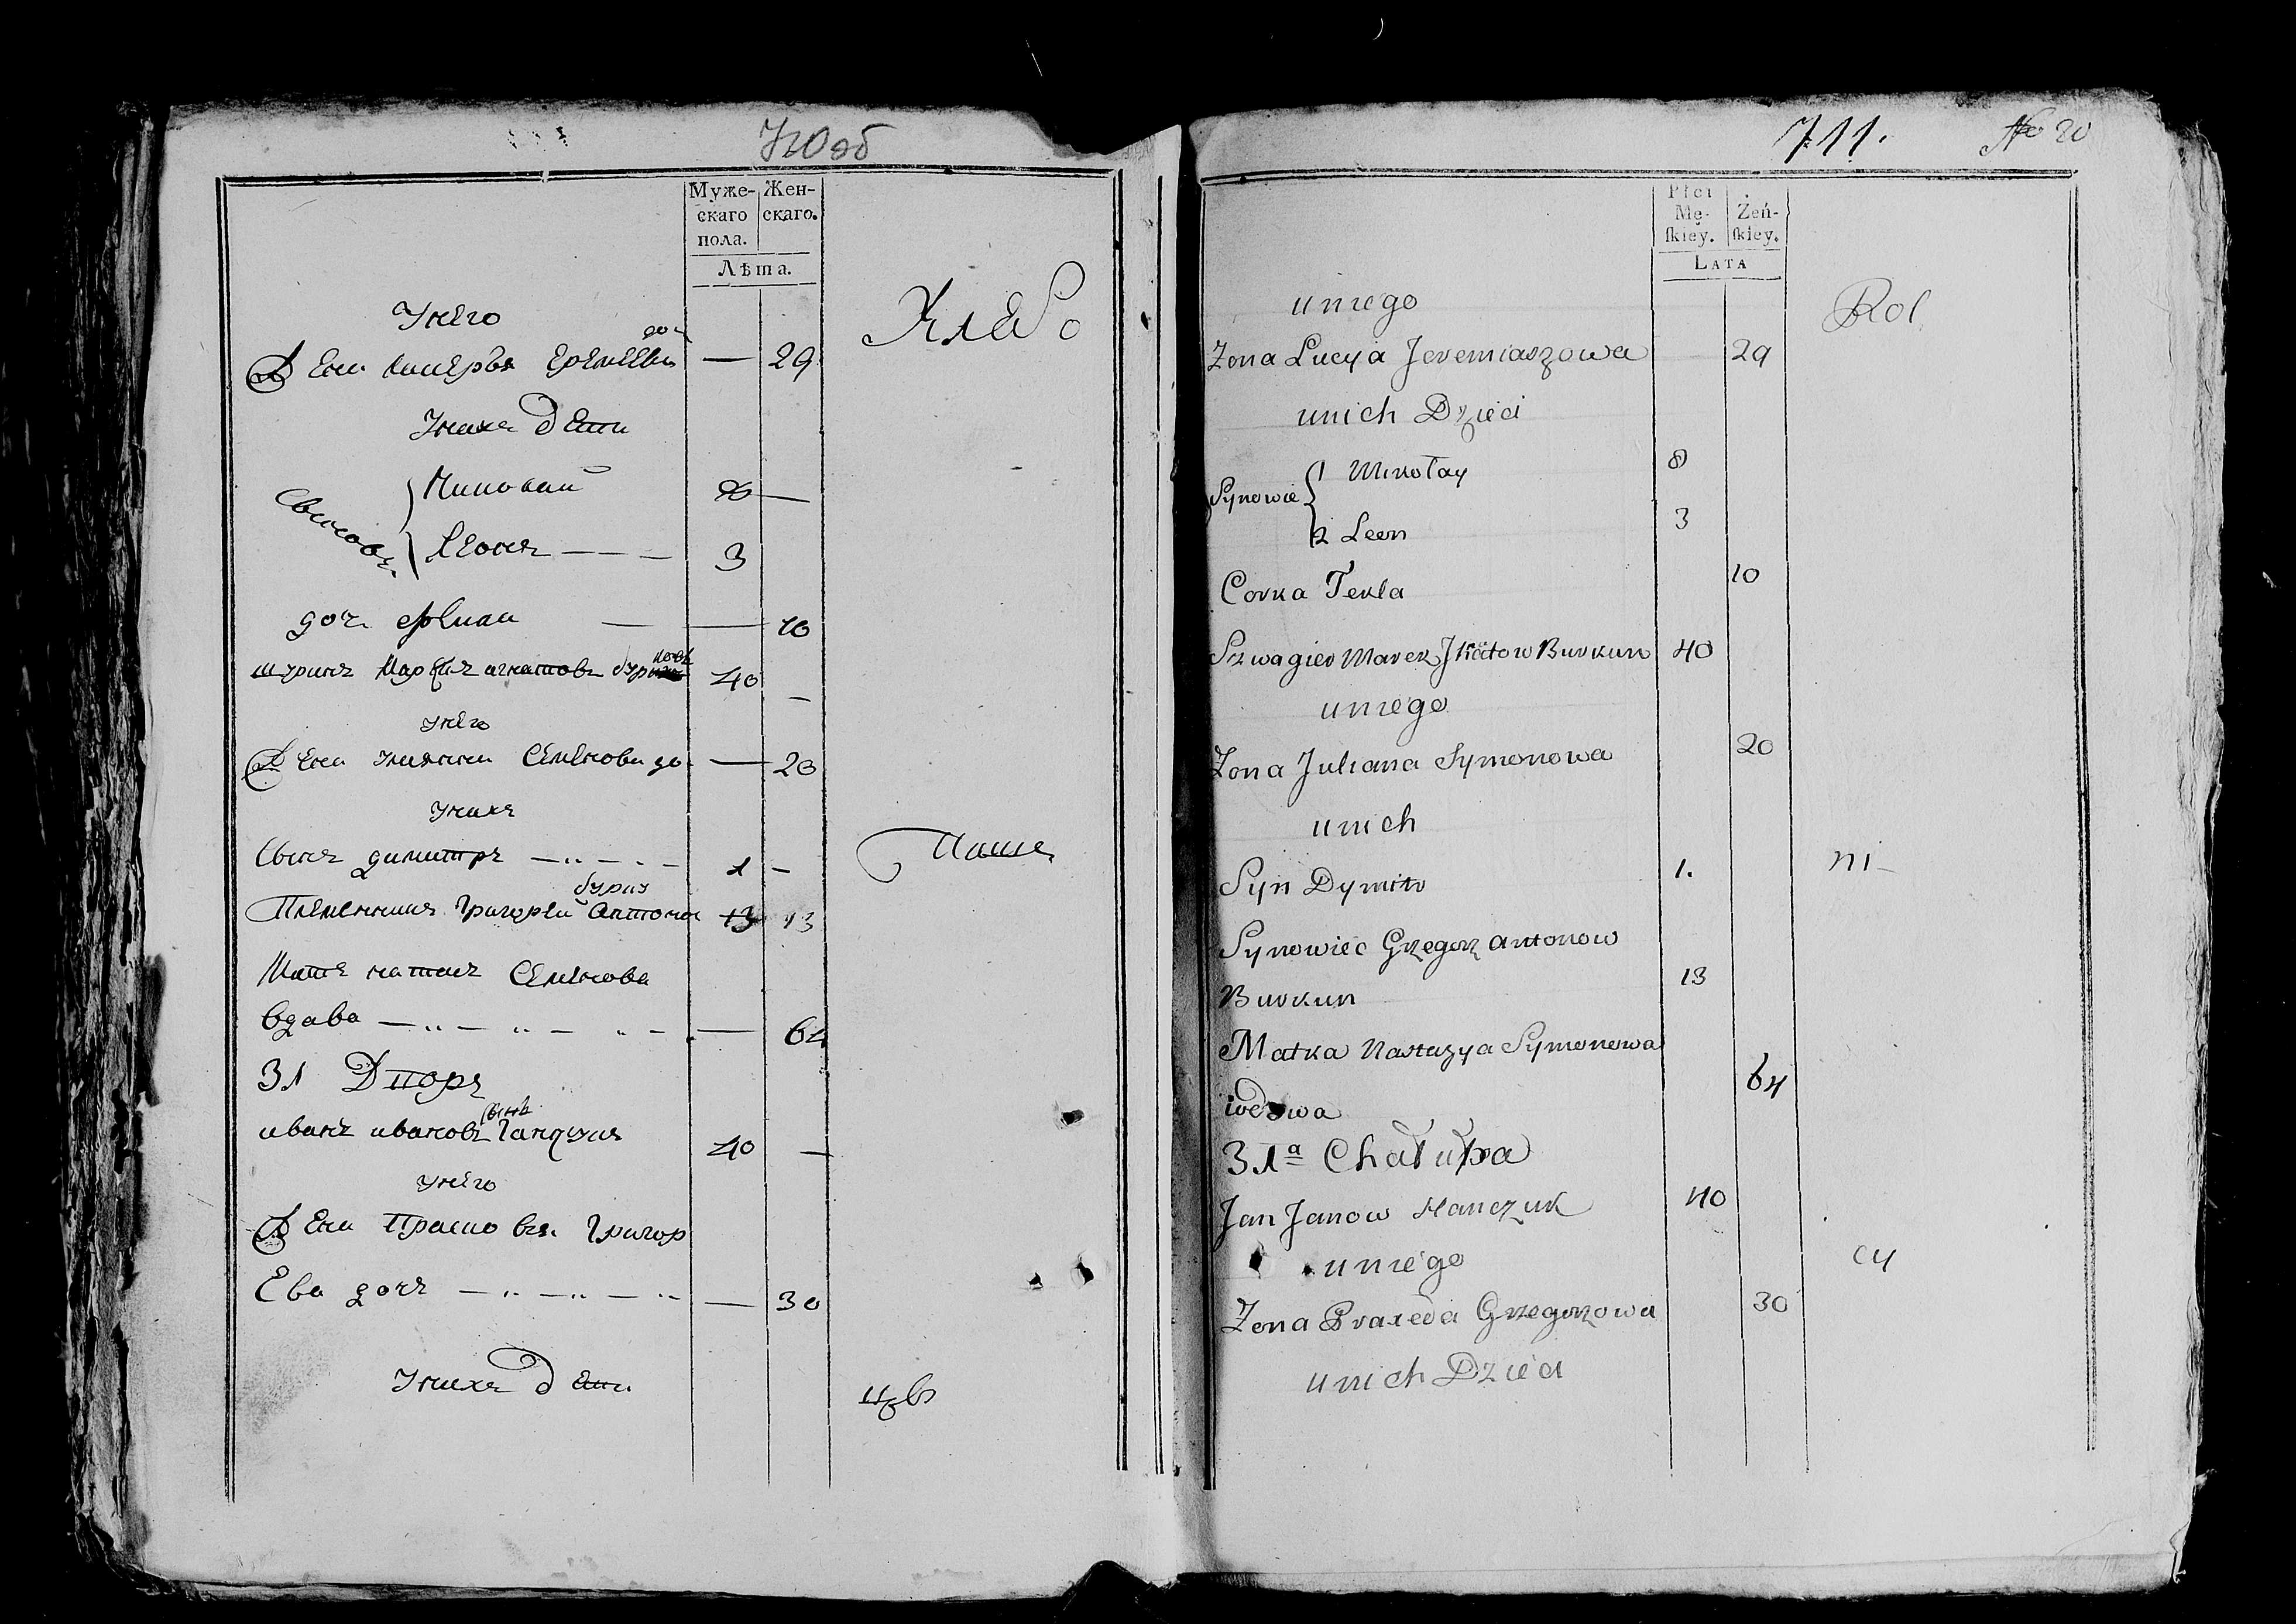 710 об
Муже- Жен-
скаго скаго.
пола.
Лѣта.
Хлебо
у него
до
Жена Еремеева — 29
у нихъ дети
Сыновъ
Миколай 8 —
Леонъ — — — 3
доч. — — 10
шуринъ Марко игнатовъ 40 —
у него
Жена Улияна Семенова до — 20
у нихъ
Сынъ димитръ — 1 —
Паше
Племенникъ Григорей Антонов 13 13
Мать Семенова
вдова — — 64
31 Дворъ
сынъ
иванъ ивановъ Ганчукъ 40 —
у него
Жена Прасковья Григор
Ева дочъ — — 30
у нихъ дети
711. No 20
Płci
Mę- Żeń-
ſkiey. ſkiey.
LATA
u niego
Rol
Zona Lucya Jeremiaszowa 29
u nich Dzieci
Synowie
1 Mikołay 8
2 Leon 3
Corka Tekla 10
Szwagier Marek Burkun 40
u niego
Zona Juliana Symonowa 20
u nich
Syn Dymitr 1.
ni-
Synowiec Grzegorz Antonow
Burkun 13
Matka Nastazya Symonowa
wdowa 64
31a Chałupa
Jan Janow Hanczuk 40
u niego
cy
Zona Praxeda Grzegorzowa 30
u nich Dzieci